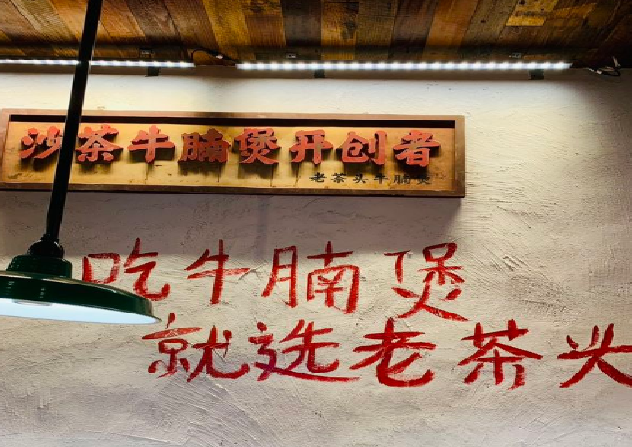 沙茶牛腩煲开创者
老茶头牛腩煲
吃牛腩煲
就选老茶头